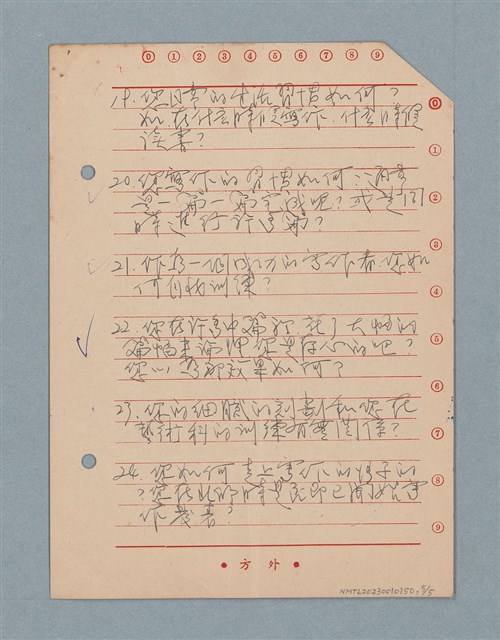 0 1 2 3 4 5 6 7 8 9
19. 您日常的生活習慣如何?
如, 在什么時候寫作, 什么時候
读書?
20. 您寫作的習慣如何?
是一篇一篇完成呢? 或是同
時進行許多篇?
21. 作為一個成功的寫作者, 您如
何自我訓練?
22. 您在許多中篇裡, 花了大幅的
篇幅來論理, 您是存心的吧?
您以為那效果如何?
23. 您的細膩的刻劃和您在
藝術科的訓練有無関係?
24. 您如何走上寫作的路子的
? 您在北師時是否即已開始寫
作發表?
0
1
2
3
4
5
6
7
8
9
• 方外 •
NMTL20230010350, 5/5